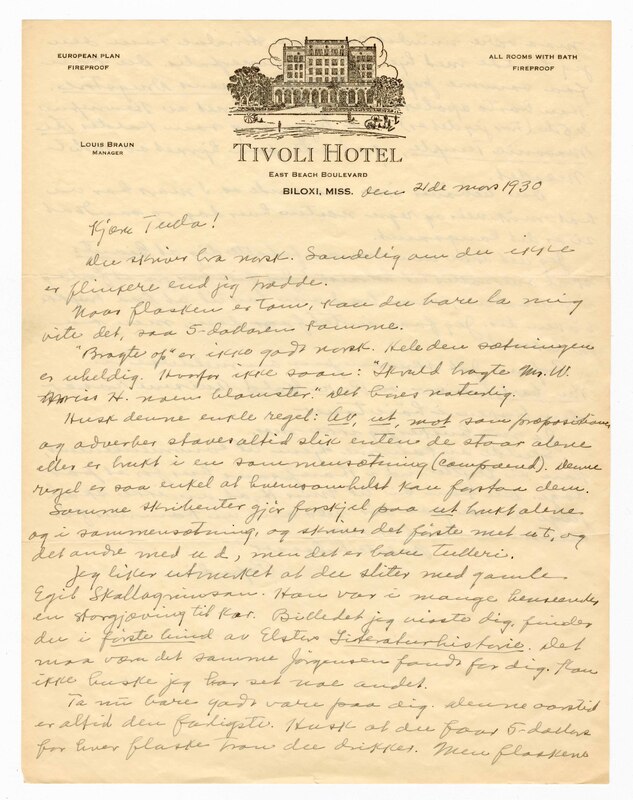 EUROPEAN PLAN
FIREPROOF
ALL ROOMS WITH BATH
FIREPROOF
LOUIS BRAUN
MANAGER
TIVOLI HOTEL
EAST BEACH BOULEVARD
BILOXI, MISS. den 21de mars 1930
Kjære Tulla!
Du skriver bra norsk. Sandelig om du ikke
er flinkere end jeg trodde.
Naar flasken er tom, kan du bare la mig
vite det, saa 5-dollaren komme.
"Bragte op" er ikke godt norsk. Hele den sætningen
er uheldig. Hvorfor ikke saan: "Skuld bragte Mr. W.
Miss H. noen blomster." Det høres naturlig.
Husk denne enkle regel: Av, ut, mot som præpositioner
og adverber staves altid slik enten de staar alene
eller er brukt i en sammensætning (compound). Denne
regel er saa enkel at hvemsomhelst kan forstaa den.
Somme skribenter gjør forskjel paa ut brukt alene
og i sammensætning, og skriver det første met ut, og
det andre med ud, men det er bare tulleri.
Jeg liker utmerket at du sliter med gamle
Egil Skallagrimson. Han var i mange henseender
en storgjæving til kar. Billedet jeg viste dig, finder
du i første bind av Elsters Literaturhistorie. Det
maa være det samme Jørgensen fandt for dig. Kan
ikke huske jeg har set noe andet.
Ta nu bare godt vare paa dig. Denne aarstid
er altid den farligste. Husk at du faar 5-dollars
for hver flaske tran du drikker. Men flaskene